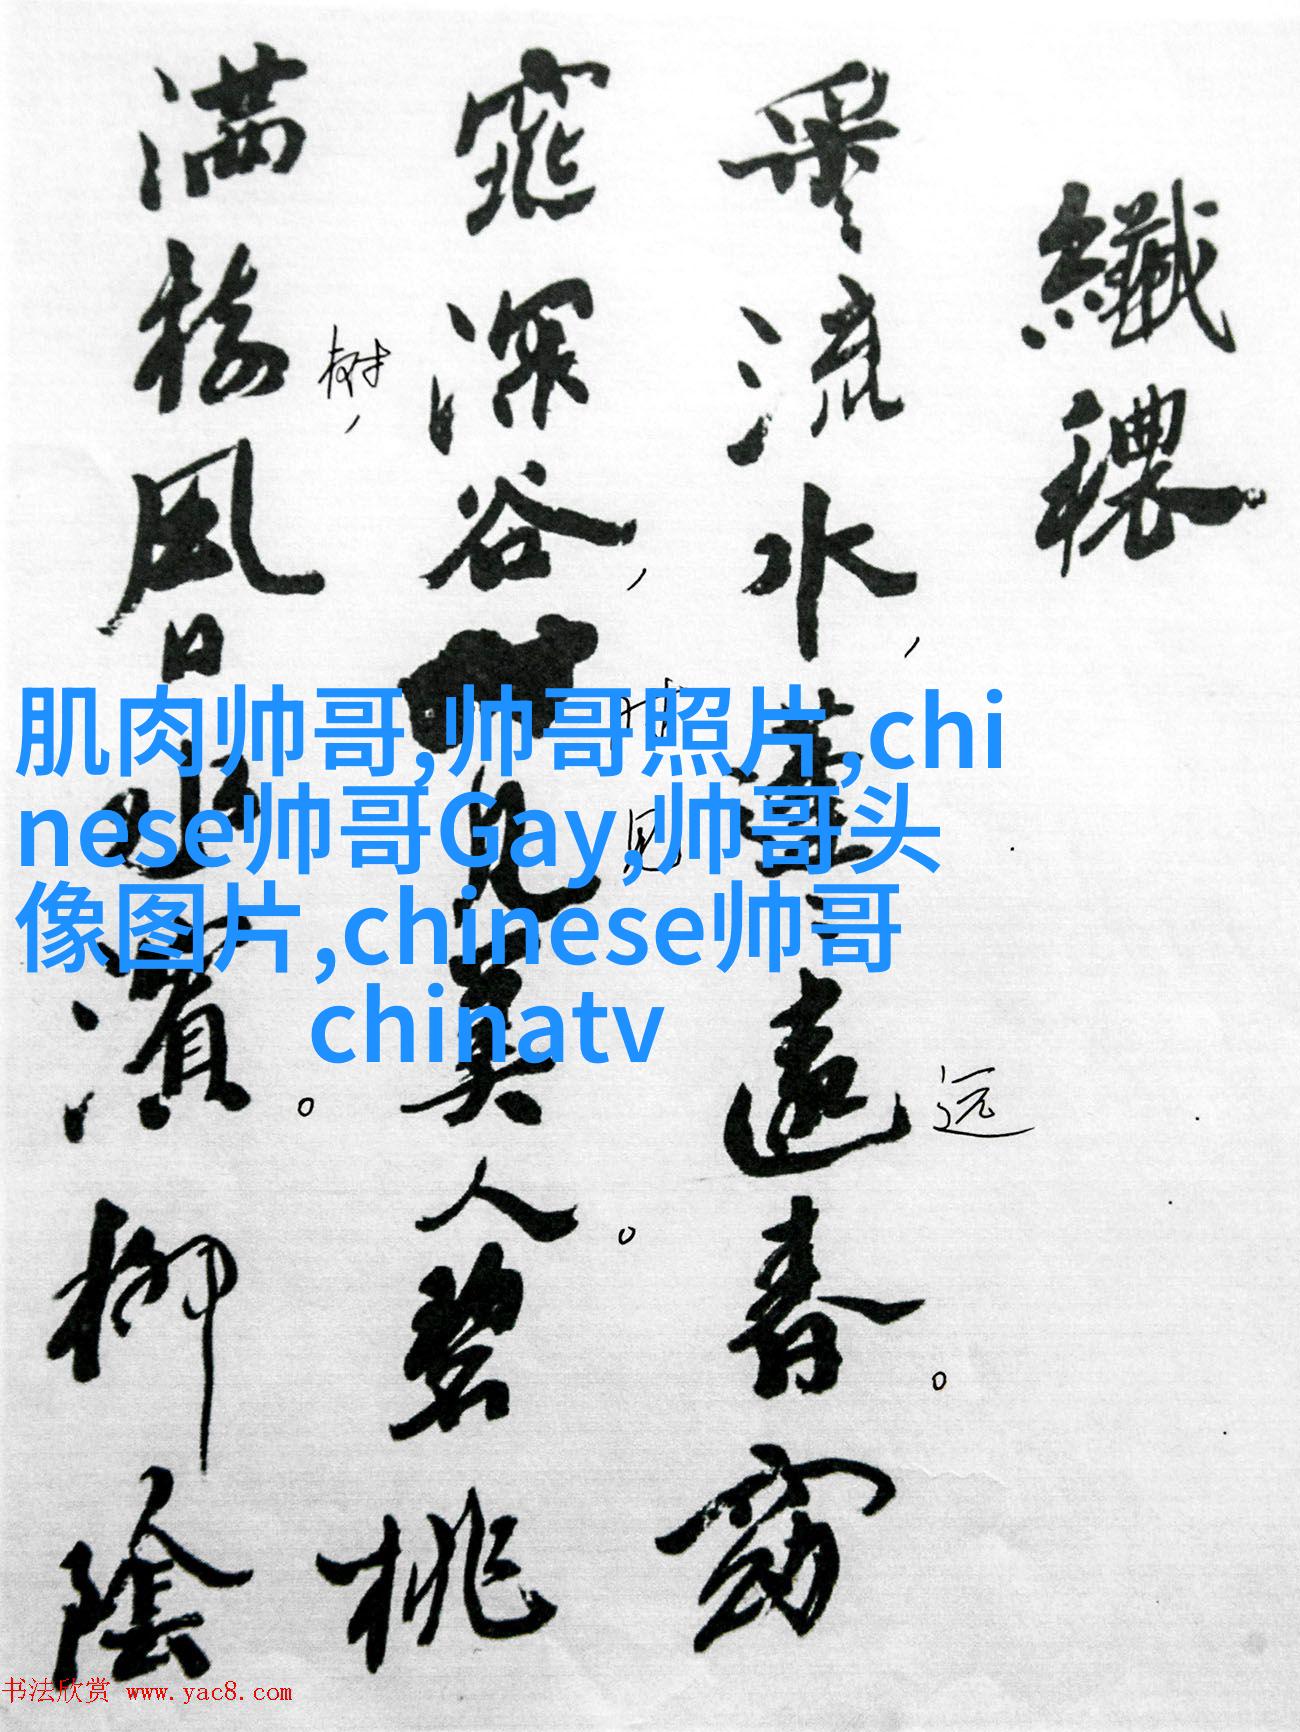 纖穠
采流水,蓬遠春。窈
远
窕深谷,見美人。碧桃
时
见
满樹風日水濱。柳陰
树,
肌肉帅哥,帅哥照片,chi
nese帅哥Gay,帅哥头
像图片,chinese帅哥
chinatv
书法欣赏 www.yac8.com